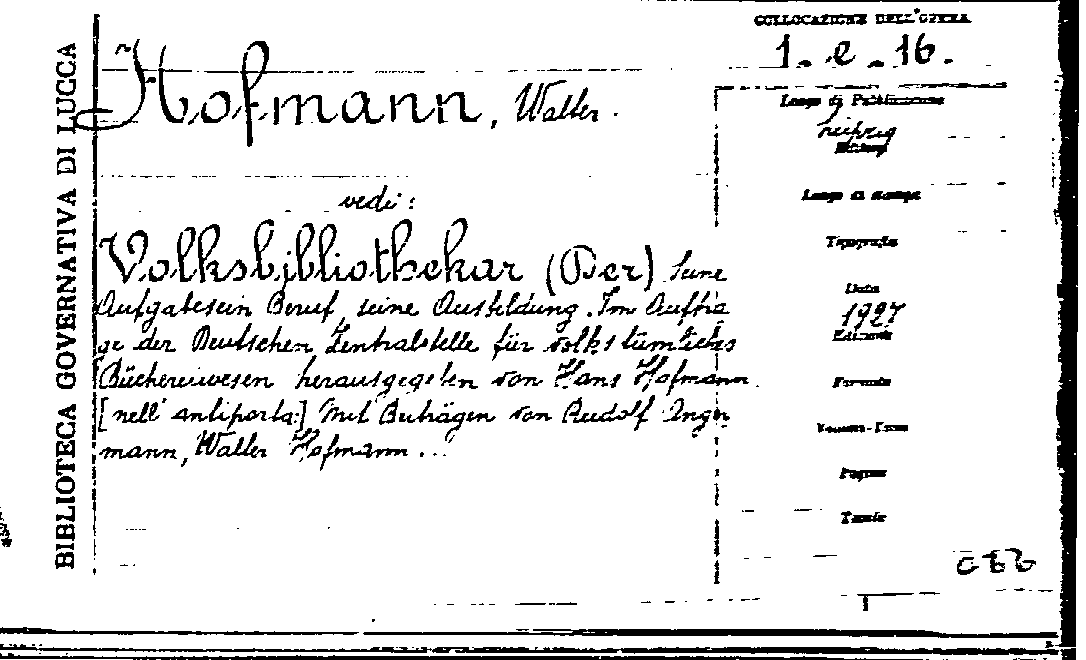 BIBLIOTECA GOVERNATIVA DI LUCCA
COLLOCAZIONE DELL'OPERA
1. e. 16.
Hofmann, Walter.
vedi:
Volksbibliothekar (Der) Seine
Aufgabe sein Beruf, seine Ausbildung. Im Auftra
ge der Deutschen Zentralstelle für volkstümliches
Büchereiwesen herausgegeben von Hans Hofmann
[nell'antiporta:] Mit Beiträgen von Rudolf Anger
mann, Walter Hofmann...
Luogo di Pubblicazione
Leipzig
Editore
Luogo di stampa
Tipografia
Data
1927
Edizione
Formato
Volumi-Tomi
Pagine
Tavole